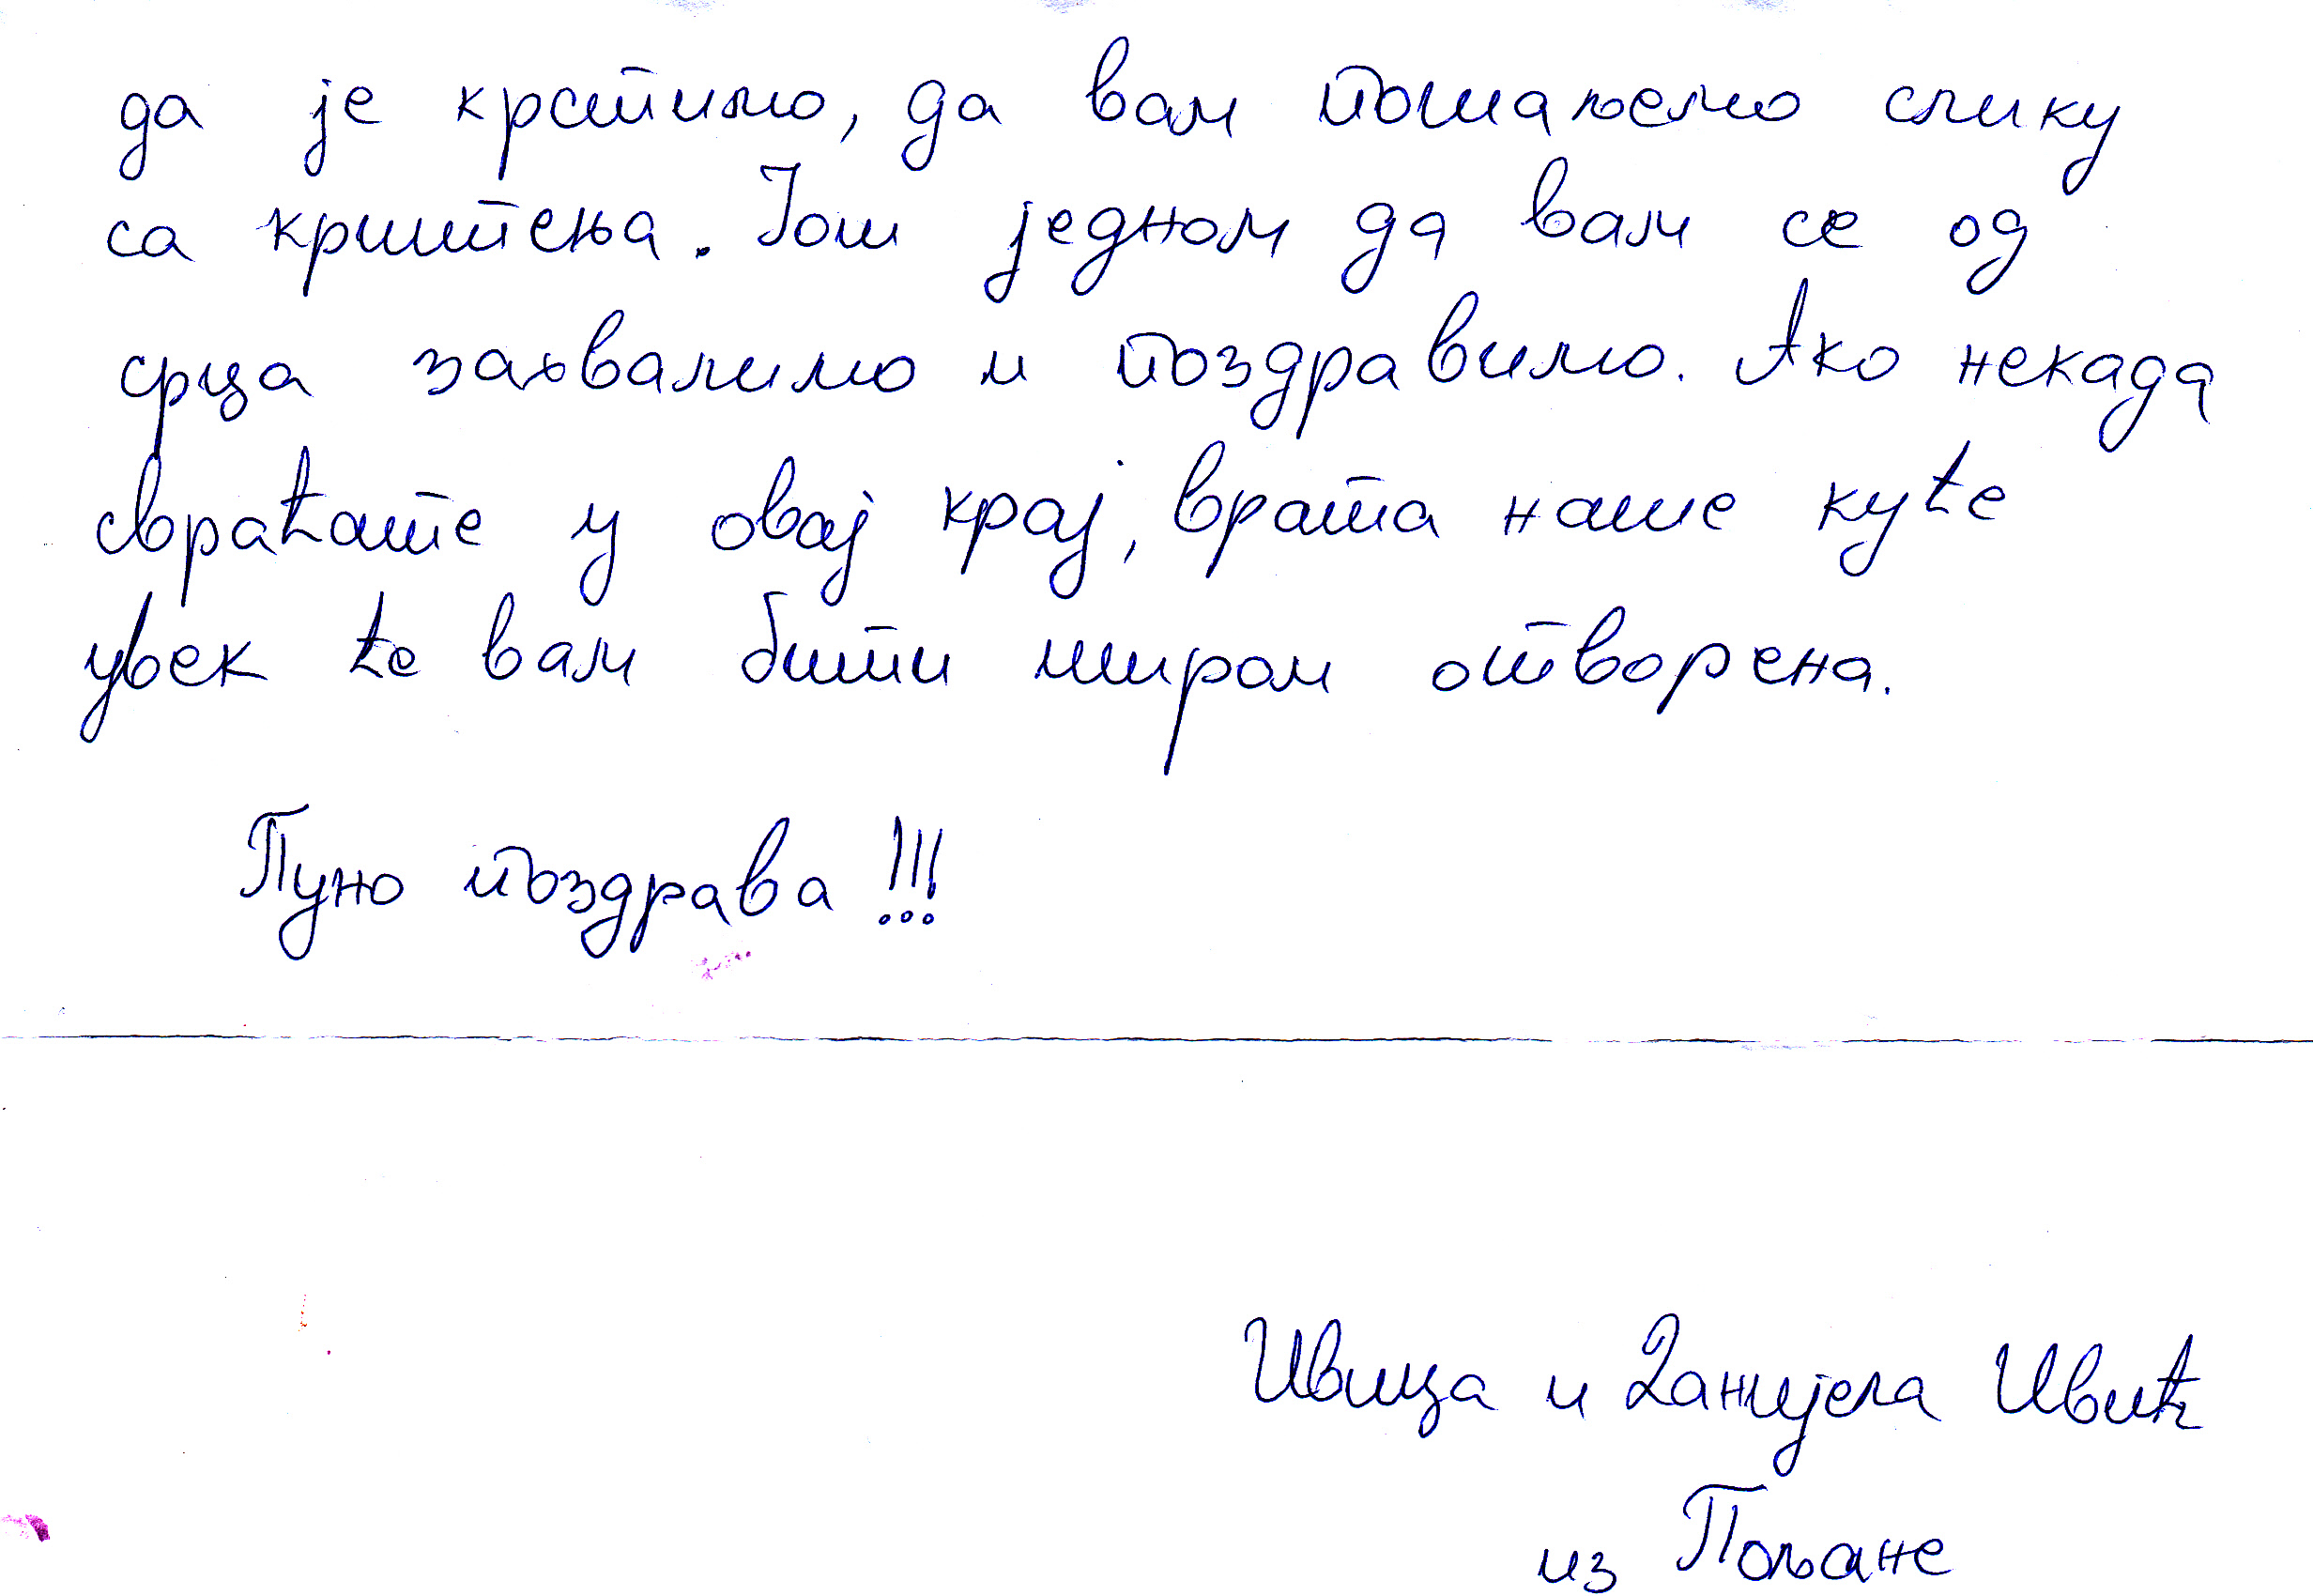 да је крстимо, да вам пошаљемо слику
са крштења. Још једном да вам се од
срца захвалимо и поздравимо. Ако некада
свраћате у овај крај, врата наше куће
увек ће вам бити широм отворена.
Пуно поздрава!!!
Ивица и Данијела Ивић
из Пољане